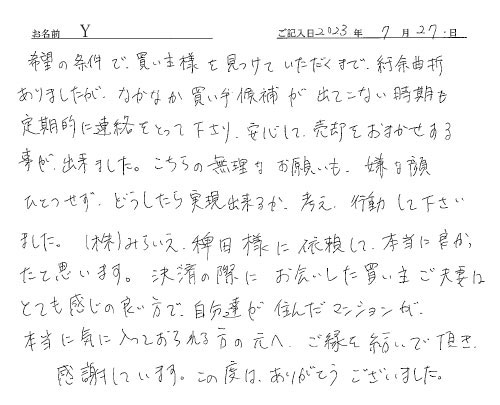 お名前 Y ご記入日 2023 年 7 月 27 日
希望の条件で、買い主様を見つけていただくまで、紆余曲折
ありましたが、なかなか買い手候補が出てこない時期も
定期的に連絡をとって下さり、安心して、売却をおまかせする
事が、出来ました。こちらの無理なお願いも、嫌な顔
ひとつせず、どうしたら実現出来るか、考え、行動して下さい
ました。(株)みらいえ、稗田様に依頼して、本当に良かっ
たと思います。決済の際にお会いした買い主ご夫妻は
とても感じの良い方で、自分達が住んだマンションが、
本当に気に入っておられる方の元へ、ご縁を紡いで頂き、
感謝しています。この度は、ありがとうございました。